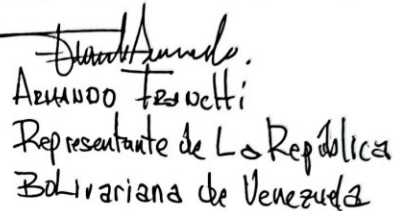 ARMANDO
Representante de La República
Bolivariana de Venezuela